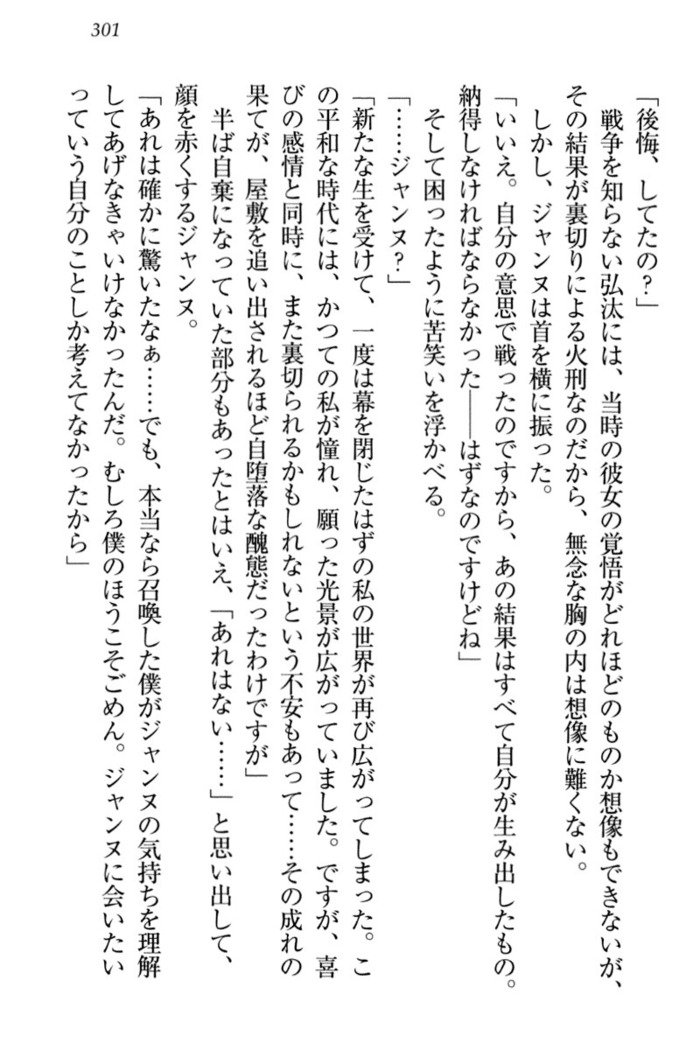 301
「後悔、してたの？」
戦争を知らない弘汰には、当時の彼女の覚悟がどれほどのものか想像もできないが、
その結果が裏切りによる火刑なのだから、無念な胸の内は想像に難くない。
しかし、ジャンヌは首を横に振った。
「いいえ。自分の意思で戦ったのですから、あの結果はすべて自分が生み出したもの。
納得しなければならなかった――はずなのですけどね」
そして困ったように苦笑いを浮かべる。
「……ジャンヌ？」
「新たな生を受けて、一度は幕を閉じたはずの私の世界が再び広がってしまった。こ
の平和な時代には、かつての私が憧れ、願った光景が広がっていました。ですが、喜
びの感情と同時に、また裏切られるかもしれないという不安もあって……その成れの
果てが、屋敷を追い出されるほど自堕落な醜態だったわけですが」
半ば自棄になっていた部分もあったとはいえ、「あれはない……」と思い出して、
顔を赤くするジャンヌ。
「あれは確かに驚いたなぁ……でも、本当なら召喚した僕がジャンヌの気持ちを理解
してあげなきゃいけなかったんだ。むしろ僕のほうこそごめん。ジャンヌに会いたい
っていう自分のことしか考えてなかったから」